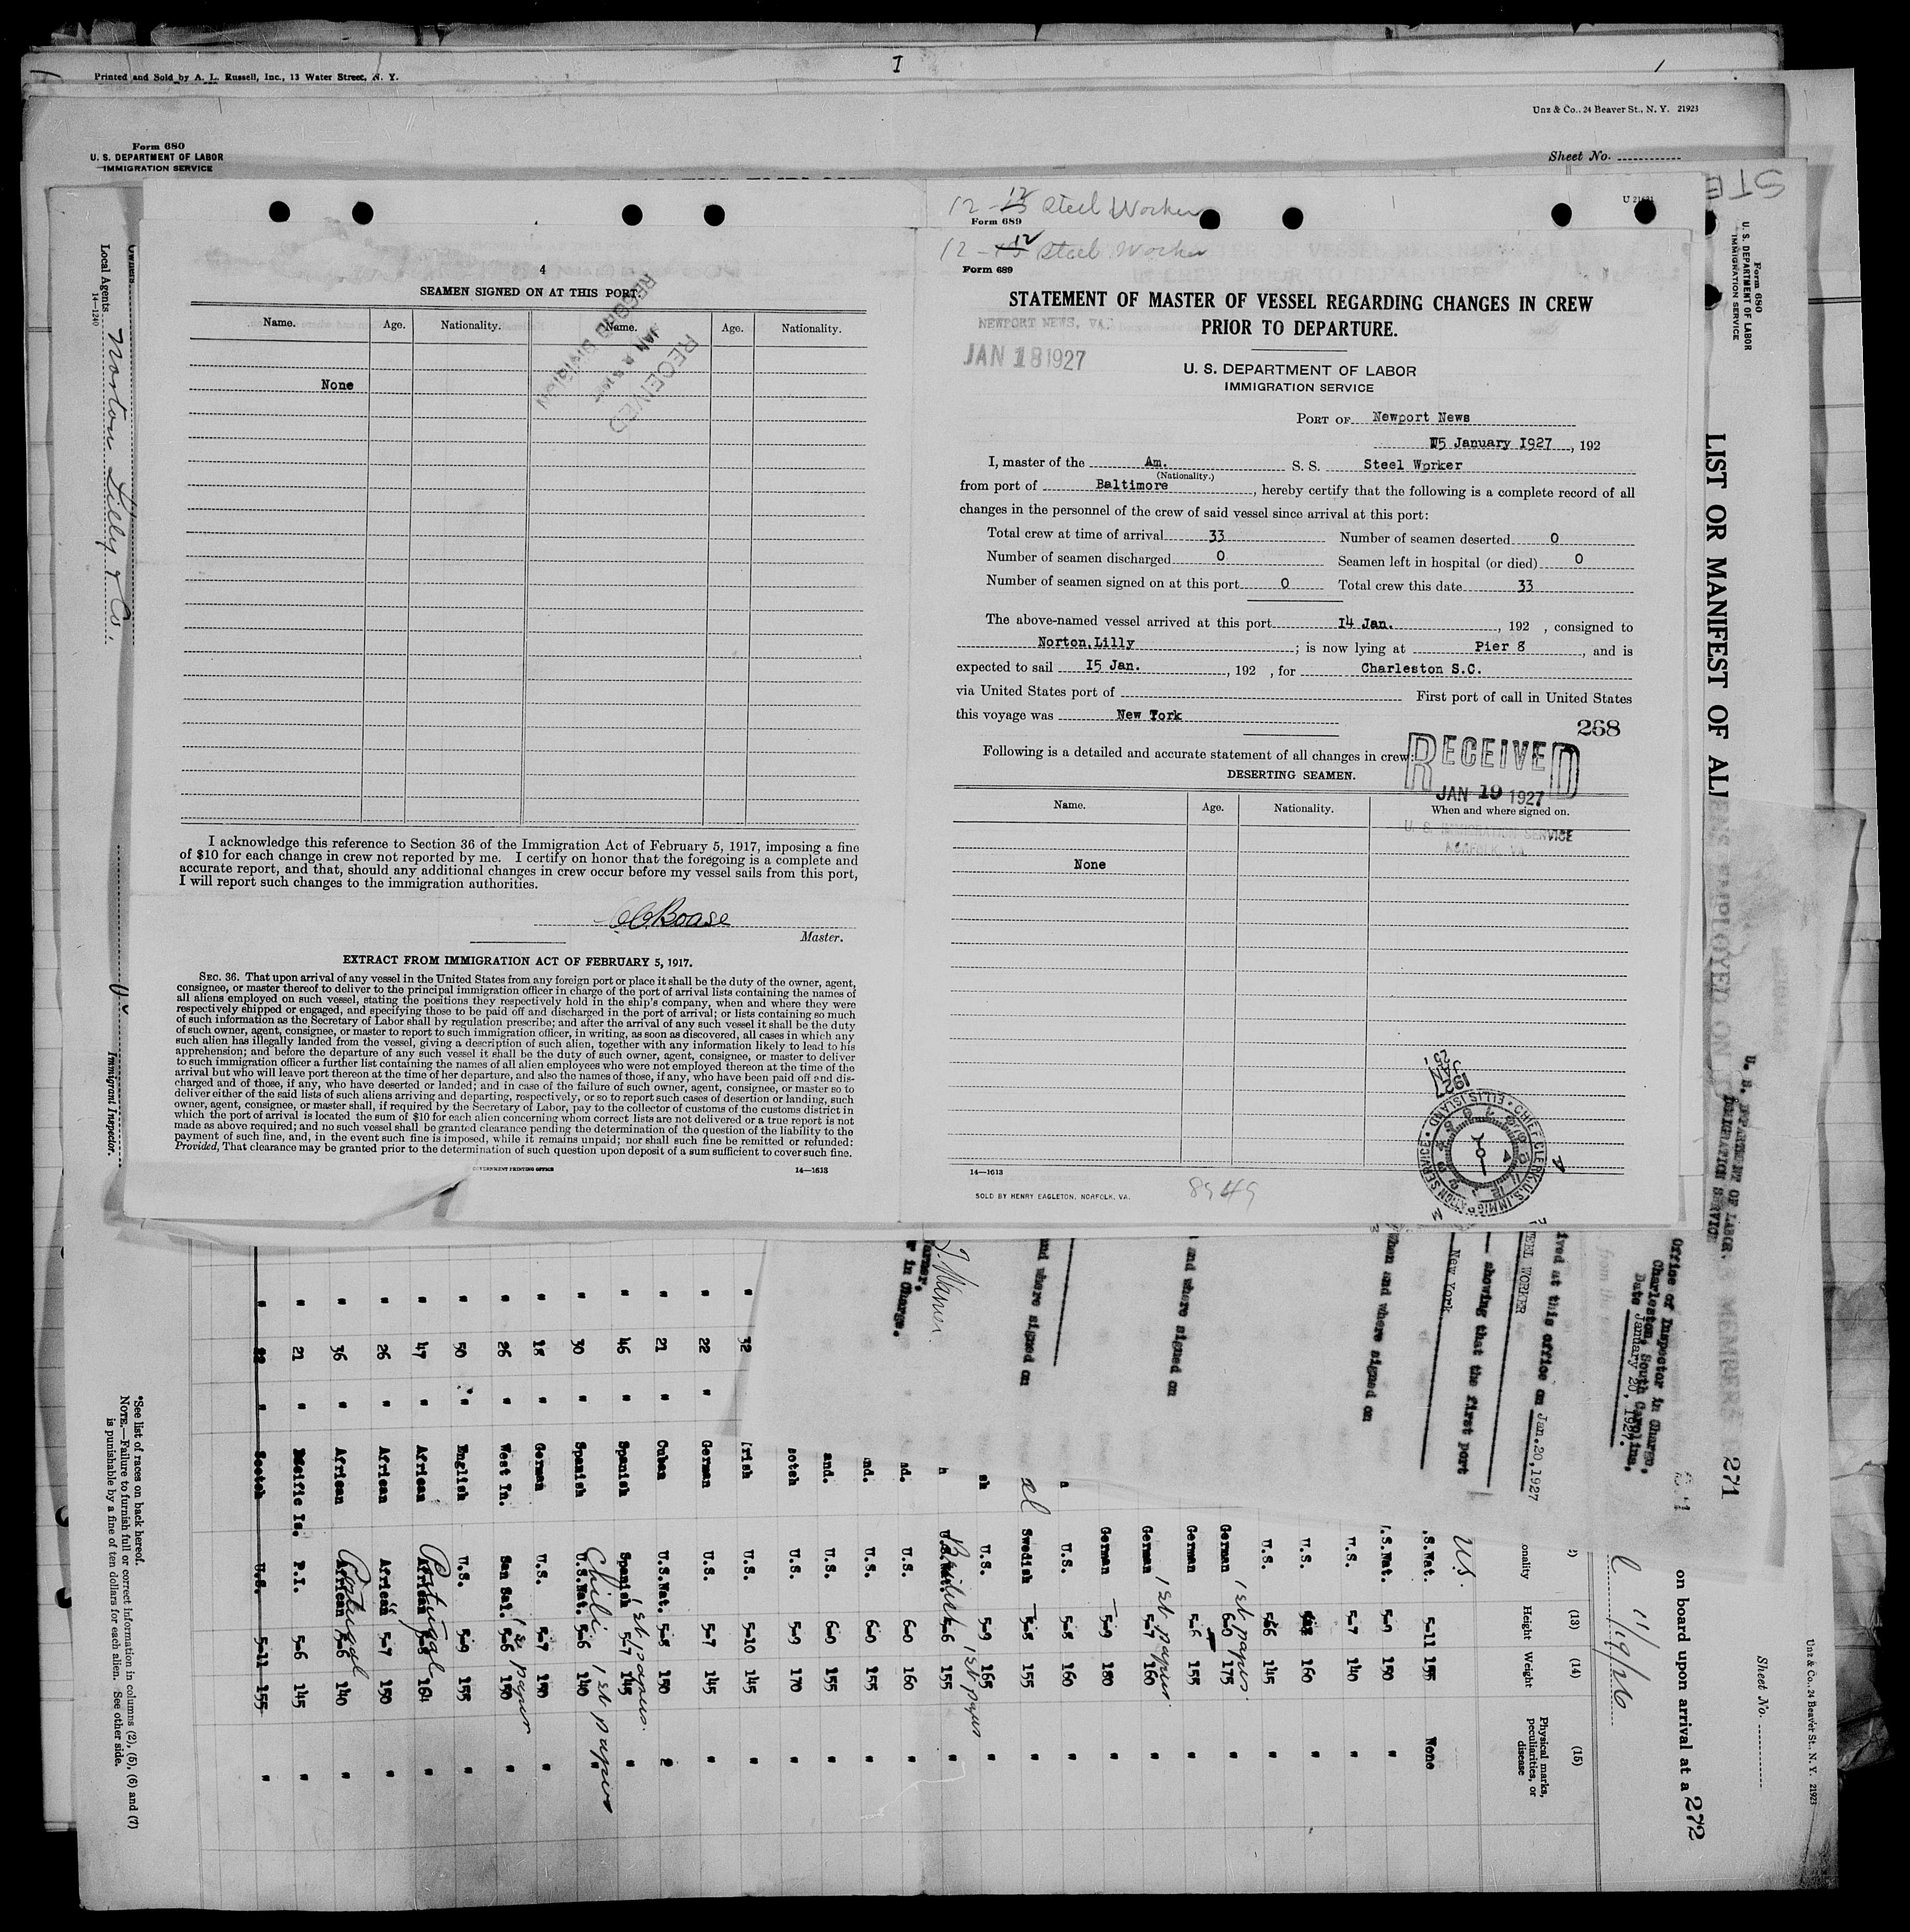 Printed and Sold by A. L. Russell, Inc., 13 Water Street, N. Y.
Unz & Co., 24 Beaver St., N. Y. 21923
Form 680
U. S. DEPARTMENT OF LABOR
IMMIGRATION SERVICE
Sheet No.
Local Agents Norton Lilly & Co.
14-1240
Immigrant Inspector.
4
SEAMEN SIGNED ON AT THIS PORT.
Name. Age. Nationality. Name. Age. Nationality.
None
RECEIVED
RECORD DIVISION
I acknowledge this reference to Section 36 of the Immigration Act of February 5, 1917, imposing a fine
of $10 for each change in crew not reported by me. I certify on honor that the foregoing is a complete and
accurate report, and that, should any additional changes in crew occur before my vessel sails from this port,
I will report such changes to the immigration authorities.
Boase
Master.
EXTRACT FROM IMMIGRATION ACT OF FEBRUARY 5, 1917.
SEC. 36. That upon arrival of any vessel in the United States from any foreign port or place it shall be the duty of the owner, agent,
consignee, or master thereof to deliver to the principal immigration officer in charge of the port of arrival lists containing the names of
all aliens employed on such vessel, stating the positions they respectively hold in the ship's company, when and where they were
respectively shipped or engaged, and specifying those to be paid off and discharged in the port of arrival; or lists containing so much
of such information as the Secretary of Labor shall by regulation prescribe; and after the arrival of any such vessel it shall be the duty
of such owner, agent, consignee, or master to report to such immigration officer, in writing, as soon as discovered, all cases in which any
such alien has illegally landed from the vessel, giving a description of such alien, together with any information likely to lead to his
apprehension; and before the departure of any such vessel it shall be the duty of such owner, agent, consignee, or master to deliver
to such immigration officer a further list containing the names of all alien employees who were not employed thereon at the time of the
arrival but who will leave port thereon at the time of her departure, and also the names of those, if any, who have been paid off and dis-
charged and of those, if any, who have deserted or landed; and in case of the failure of such owner, agent, consignee, or master so to
deliver either of the said lists of such aliens arriving and departing, respectively, or so to report such cases of desertion or landing, such
owner, agent, consignee, or master shall, if required by the Secretary of Labor, pay to the collector of customs of the customs district in
which the port of arrival is located the sum of $10 for each alien concerning whom correct lists are not delivered or a true report is not
made as above required; and no such vessel shall be granted clearance pending the determination of the question of the liability to the
payment of such fine, and, in the event such fine is imposed, while it remains unpaid; nor shall such fine be remitted or refunded:
Provided, That clearance may be granted prior to the determination of such question upon deposit of a sum sufficient to cover such fine.
GOVERNMENT PRINTING OFFICE 14—1613
12 - 12 Steel Worker
Form 689
12 - 12 Steel Worker
Form 689
STATEMENT OF MASTER OF VESSEL REGARDING CHANGES IN CREW
PRIOR TO DEPARTURE.
NEWPORT NEWS, VA.
JAN 18 1927
U. S. DEPARTMENT OF LABOR
IMMIGRATION SERVICE
PORT OF Newport News
15 January 1927, 192
I, master of the Am. S. S. Steel Worker
(Nationality.)
from port of Baltimore, hereby certify that the following is a complete record of all
changes in the personnel of the crew of said vessel since arrival at this port:
Total crew at time of arrival 33 Number of seamen deserted 0
Number of seamen discharged 0 Seamen left in hospital (or died) 0
Number of seamen signed on at this port 0 Total crew this date 33
The above-named vessel arrived at this port 14 Jan., 192 , consigned to
Norton, Lilly; is now lying at Pier 8, and is
expected to sail 15 Jan., 192 , for Charleston S.C.
via United States port of First port of call in United States
this voyage was New York
268
Following is a detailed and accurate statement of all changes in crew:
RECEIVED
JAN 19 1927
U. S. IMMIGRATION SERVICE
NORFOLK, VA.
DESERTING SEAMEN.
Name. Age. Nationality. When and where signed on.
None
14—1613
SOLD BY HENRY EAGLETON, NORFOLK, VA.
8949
CHIEF CLERK, U.S. IMMIGRATION SERVICE • ELLIS ISLAND •
Form 680
U. S. DEPARTMENT OF LABOR
IMMIGRATION SERVICE
LIST OR MANIFEST OF ALIENS EMPLOYED ON
MEMBERS
271
U. S. DEPARTMENT OF LABOR.
IMMIGRATION SERVICE
Office of Inspector in Charge,
Charleston, South Carolina,
Date January 20, 1927.
ived at this office on Jan. 20, 1927
TEEL WORKER
showing that the first port
New York
when and where signed on
and where signed on
and where signed on
in Charge.
on board upon arrival at a 272
11/19/26
Sheet No.
Unz & Co., 24 Beaver St., N. Y. 21923
(13) Height
(14) Weight
(15) Physical marks, peculiarities, or disease
U.S.
.S.Nat. 5-11 155 None
.S.Nat. 5-9 150 "
U.S. 5-7 140 "
U.S. 160 "
U.S. 145 "
German 6-0 175 " 1st papers
German 5-6 155 "
German 5-7 160 " 1st papers
German 5-9 180 "
U.S. 5-8 160 "
Swedish 5-8 155 "
U.S. 5-9 165 " 1st papers
British 155 "
U.S. 6-0 160 "
U.S. 6-0 155 "
U.S. 6-0 155 "
U.S. 5-9 170 "
32 Irish U.S. 5-10 145 "
22 " German U.S. 5-7 145 "
21 " Cuban U.S.Nat. 5-8 150
46 " Spanish Spanish 5-7 145 " 1st papers
30 " Spanish Chili 5-6 140 1st papers
18 " German U.S. 5-7 150 "
26 " West In. San Sal. 5-6 150 " 1st paper
50 " English U.S. 5-9 155 "
47 " African Portugal 5-8 164 "
26 " African African 5-7 150 "
36 " African Portugal 5-6 140 "
21 " Pacific Is. P.I. 5-6 145 "
22 " Scotch U.S. 5-11 155 "
*See list of races on back hereof.
NOTE.—Failure to furnish full or correct information in columns (2), (5), (6) and (7)
is punishable by a fine of ten dollars for each alien. See other side.